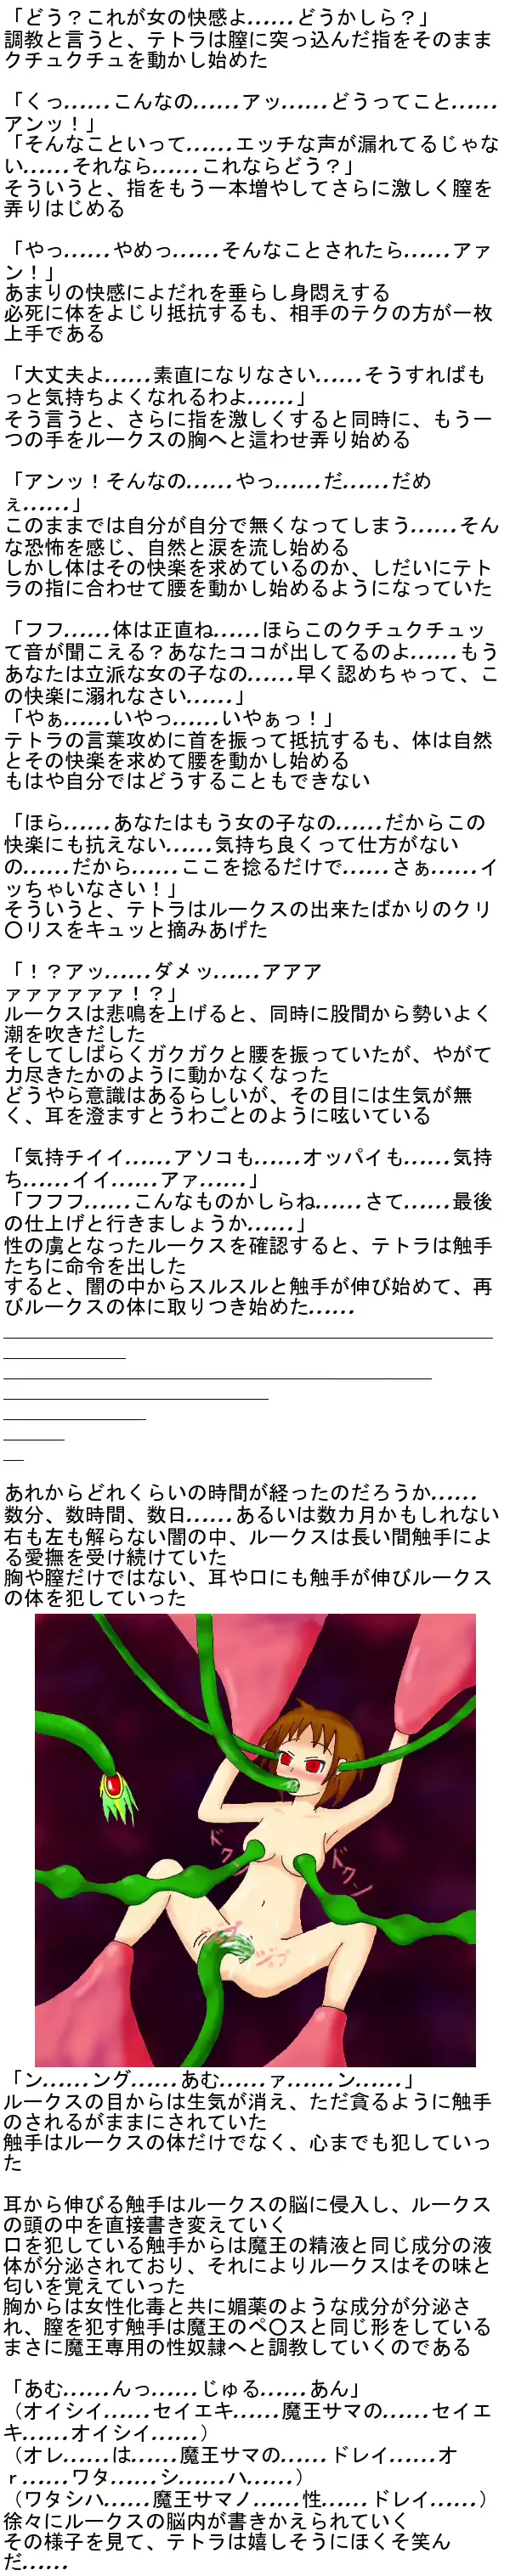 「どう？これが女の快感よ......どうかしら？」
調教と言うと、テトラは膣に突っ込んだ指をそのまま
クチュクチュを動かし始めた
「くっ......こんなの......アッ......どうってこと......
アンッ！」
「そんなこといって......エッチな声が漏れてるじゃな
い......それなら......これならどう？」
そういうと、指をもう一本増やしてさらに激しく膣を
弄りはじめる
「やっ......やめっ......そんなことされたら......アァ
ン！」
あまりの快感によだれを垂らし身悶えする
必死に体をよじり抵抗するも、相手のテクの方が一枚
上手である
「大丈夫よ......素直になりなさい......そうすればも
っと気持ちよくなれるわよ......」
そう言うと、さらに指を激しくすると同時に、もう一
つの手をルークスの胸へと這わせ弄り始める
「アンッ！そんなの......やっ......だ......だめ
ぇ......」
このままでは自分が自分で無くなってしまう......そん
な恐怖を感じ、自然と涙を流し始める
しかし体はその快楽を求めているのか、しだいにテト
ラの指に合わせて腰を動かし始めるようになっていた
「フフ......体は正直ね......ほらこのクチュクチュッ
て音が聞こえる？あなたココが出してるのよ......もう
あなたは立派な女の子なの......早く認めちゃって、こ
の快楽に溺れなさい......」
「やぁ......いやっ......いやぁっ！」
テトラの言葉攻めに首を振って抵抗するも、体は自然
とその快楽を求めて腰を動かし始める
もはや自分ではどうすることもできない
「ほら......あなたはもう女の子なの......だからこの
快楽にも抗えない......気持ち良くって仕方がない
の......だから......ここを捻るだけで......さぁ......イ
ッちゃいなさい！」
そういうと、テトラはルークスの出来たばかりのクリ
〇リスをキュッと摘みあげた
「！？アッ......ダメッ......アアア
ァァァァァァ！？」
ルークスは悲鳴を上げると、同時に股間から勢いよく
潮を吹きだした
そしてしばらくガクガクと腰を振っていたが、やがて
力尽きたかのように動かなくなった
どうやら意識はあるらしいが、その目には生気が無
く、耳を澄ますとうわごとのように呟いている
「気持チイイ......アソコも......オッパイも......気持
ち......イイ......アァ......」
「フフフ......こんなものかしらね......さて......最後
の仕上げと行きましょうか......」
性の虜となったルークスを確認すると、テトラは触手
たちに命令を出した
すると、闇の中からスルスルと触手が伸び始めて、再
びルークスの体に取りつき始めた......
あれからどれくらいの時間が経ったのだろうか......
数分、数時間、数日......あるいは数カ月かもしれない
右も左も解らない闇の中、ルークスは長い間触手によ
る愛撫を受け続けていた
胸や膣だけではない、耳や口にも触手が伸びルークス
の体を犯していった
ドクン
ドクン
ジュプ
「ン......ング......あむ......ァ......ン......」
ルークスの目からは生気が消え、ただ貪るように触手
のされるがままにされていた
触手はルークスの体だけでなく、心までも犯していっ
た
耳から伸びる触手はルークスの脳に侵入し、ルークス
の頭の中を直接書き変えていく
口を犯している触手からは魔王の精液と同じ成分の液
体が分泌されており、それによりルークスはその味と
匂いを覚えていった
胸からは女性化毒と共に媚薬のような成分が分泌さ
れ、膣を犯す触手は魔王のペ〇スと同じ形をしている
まさに魔王専用の性奴隷へと調教していくのである
「あむ......んっ......じゅる......あん」
（オイシイ......セイエキ......魔王サマの......セイエ
キ......オイシイ......）
（オレ......は......魔王サマの......ドレイ......オ
ｒ......ワタ......シ......ハ......）
（ワタシハ......魔王サマノ......性......ドレイ......）
徐々にルークスの脳内が書きかえられていく
その様子を見て、テトラは嬉しそうにほくそ笑ん
だ......